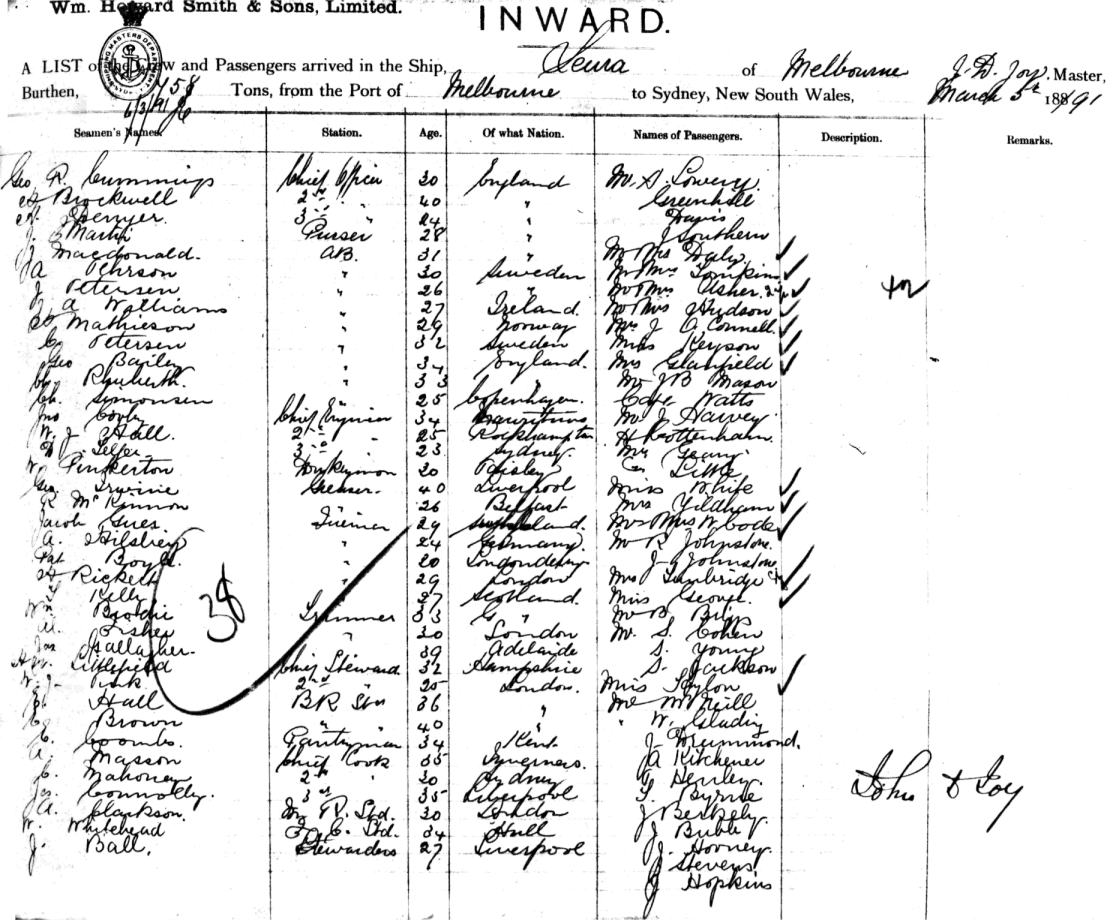 Wm. Howard Smith & Sons, Limited.
INWARD.
A LIST of the Crew and Passengers arrived in the Ship, of Melbourne J. D. Joy. Master,
Burthen, 758 Tons, from the Port of Melbourne to Sydney, New South Wales, March 5th 1891
6/3/91
Seamen's Names. Station. Age. Of what Nation. Names of Passengers. Description. Remarks.
Geo R. Cummings Chief Officer 30 England Mr. S. Lowery.
Brockwell 2nd " 40 " Greenhill
3rd " 24 " Davis
J. Martin Purser 28 " J Southern
J. Macdonald. A.B. 31 " Mr Mrs Daly.
A Pehrson " 30 Sweden Mr Mrs Tomkins
J. Petersen " 26 " Mr Mrs Usher.
J. A Williams " 27 Ireland. Mr Mrs Hudson
Mathieson " 29 Norway Mrs J O'Connell.
C. Petersen " 32 Sweden Miss Keyson
Geo Bailey " 34 England. Mrs Glanfield
" 33 " Mr J B Mason
Ch. Simonsen " 25 Copenhagen. Capt Watts
Jno Chief Engineer 34 Mauritius Mr J Harvey
W. J. Hall. 2nd " 25 Rockhampton H Cottenham.
Telfer 3rd " 23 Sydney. Mr Geary.
W. Pinkerton Donkeyman 30 Paisley Little
Geo. Irvine Greaser. 40 Liverpool Miss White
R McKinnon " 26 Belfast Mrs Yildham
Jacob Gues Fireman 29 Mr Mrs W Code
A. " 24 Germany. Mr R Johnstone.
Pat Boyd. " 20 Londonderry J. Johnstone
H Rickett " 29 London Mrs Tunbridge
J Kelly " 27 Scotland. Miss George.
Wm Brodie Trimmer 33 " Mr B Bigg
Fisher " 30 London Mr. S. Cohen
Jas Gallagher. 39 Adelaide S. Young
H. W. Littlefield Chief Steward. 32 Hampshire S. Jackson
W. J. Pink 2nd " 25 London. Miss Taylor
Hall BR Std 36 " Mr McNeill
C. Brown " " 40 " " W. Gladin
C. Coombs. Pantryman 34 Kent. J. Drummond.
A. Masson Chief Cook 35 Inverness. A Kitchener
C. Mahoney 2nd " 30 Sydney Henley
Jas. Connolly. 3rd " 35 Liverpool T. Byrne
A. Clarkson. R. Std. 30 London J Berkely
W. Whitehead F. C. Std. 34 Hull J Bubb
J. Ball. Stewardess 27 Liverpool J. Hooney
J Stevens
J Hopkins
38
John D Joy